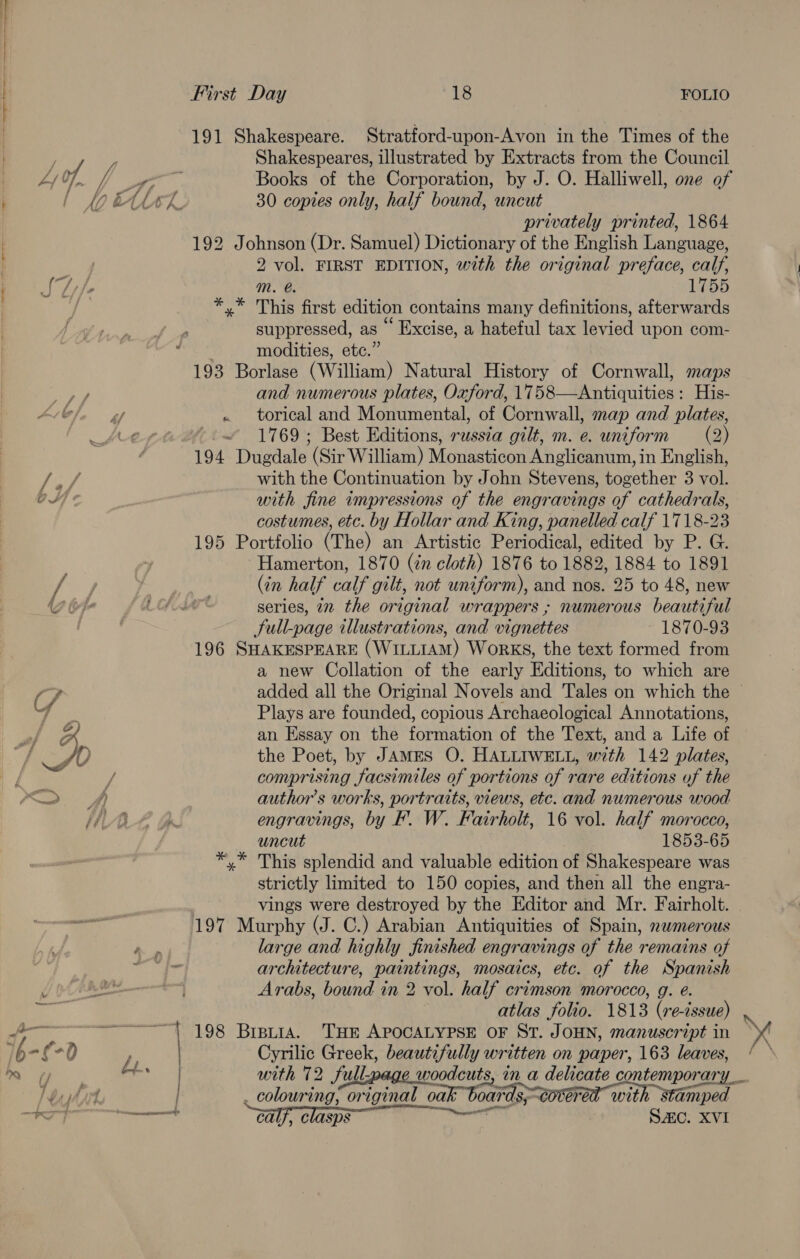 First Day 18 FOLIO
191 Shakespeare. Stratford-upon-Avon in the Times of the
Shakespeares, illustrated by Extracts from the Council
Books of the Corporation, by J. O. Halliwell, one of
30 copies only, half bound, uncut
privately printed, 1864
192 Johnson (Dr. Samuel) Dictionary of the English Language,
2 vol. FIRST EDITION, with the original preface, calf,
m. e. 1755
*** This first edition contains many definitions, afterwards
suppressed, as “Excise, a hateful tax levied upon com-
modities, etc.”
193 Borlase (William) Natural History of Cornwall, maps
and numerous plates, Oxford, 1758—Antiquities: His-
torical and Monumental, of Cornwall, map and plates,
1769; Best Editions, russia gilt, m. e. uniform (2)
194 Dugdale (Sir William) Monasticon Anglicanum, in English,
with the Continuation by John Stevens, together 3 vol.
with fine impressions of the engravings of cathedrals,
costumes, etc. by Hollar and King, panelled calf 1718-23
195 Portfolio (The) an Artistic Periodical, edited by P. G.
Hamerton, 1870 (in cloth) 1876 to 1882, 1884 to 1891
(in half calf gilt, not uniform), and nos. 25 to 48, new
series, in the original wrappers; numerous beautiful
full-page illustrations, and vignettes 1870-93
196 SHAKESPEARE (WILLIAM) WORKS, the text formed from
a new Collation of the early Editions, to which are
added all the Original Novels and Tales on which the
Plays are founded, copious Archaeological Annotations,
an Essay on the formation of the Text, and a Life of
the Poet, by JAMES O. HALLIWELL, with 142 plates,
comprising facsimiles of portions of rare editions of the
author's works, portraits, views, etc. and numerous wood
engravings, by F. W. Fairholt, 16 vol. half morocco,
uncut 1853-65
*** This splendid and valuable edition of Shakespeare was
strictly limited to 150 copies, and then all the engra-
vings were destroyed by the Editor and Mr. Fairholt.
197 Murphy (J. C.) Arabian Antiquities of Spain, numerous
large and highly finished engravings of the remains of
architecture, paintings, mosaics, etc. of the Spanish
Arabs, bound in 2 vol. half crimson morocco, g. e.
atlas folio. 1813 (re-issue)
198 BIBLIA. THE APOCALYPSE OF ST. JOHN, manuscript in
Cyrilic Greek, beautifully written on paper, 163 leaves,
with 72 full-page woodcuts, in a delicate contemporary
colouring, original oak boards, covered with stamped
calf, clasps SÆC. XVI